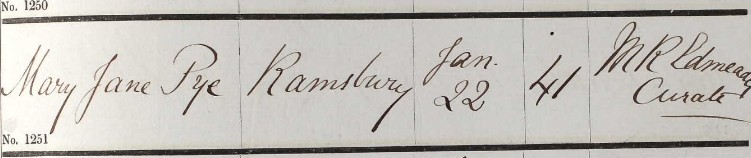 No. 1250
Mary Jane Pye Ramsbury Jan. 22 41 M R Edmeades Curate
No. 1251